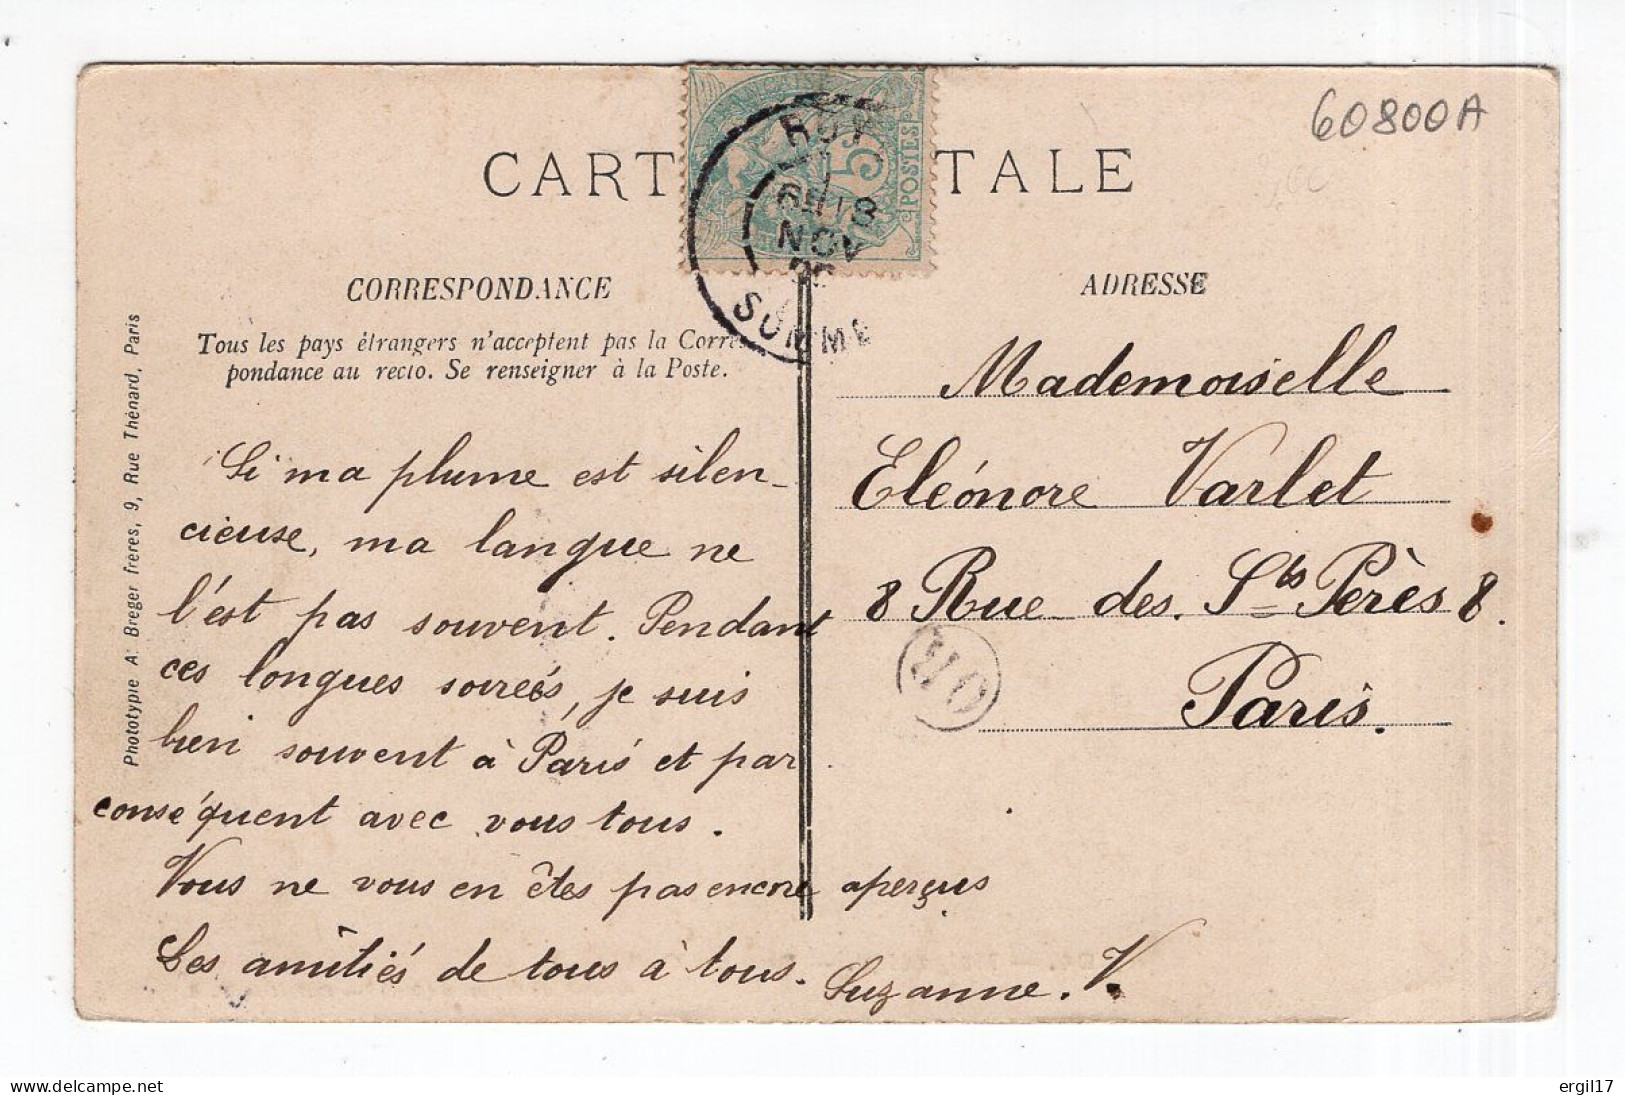 60800A
CARTE POSTALE
POSTES
5
ROY
18
NOV
SOMME
CORRESPONDANCE
Tous les pays étrangers n'acceptent pas la Corres
pondance au recto. Se renseigner à la Poste.
Si ma plume est silen-
cieuse, ma langue ne
l'est pas souvent. Pendant
ces longues soirées, je suis
bien souvent à Paris et par
conséquent avec vous tous.
Vous ne vous en êtes pas encore aperçus
Les amitiés de tous à tous. Suzanne. V.
ADRESSE
Mademoiselle
Eléonore Varlet
8 Rue des Sts Pères 8.
Paris.
OR
Phototypie A. Breger frères, 9, Rue Thénard, Paris
delcampe.net
ergil17